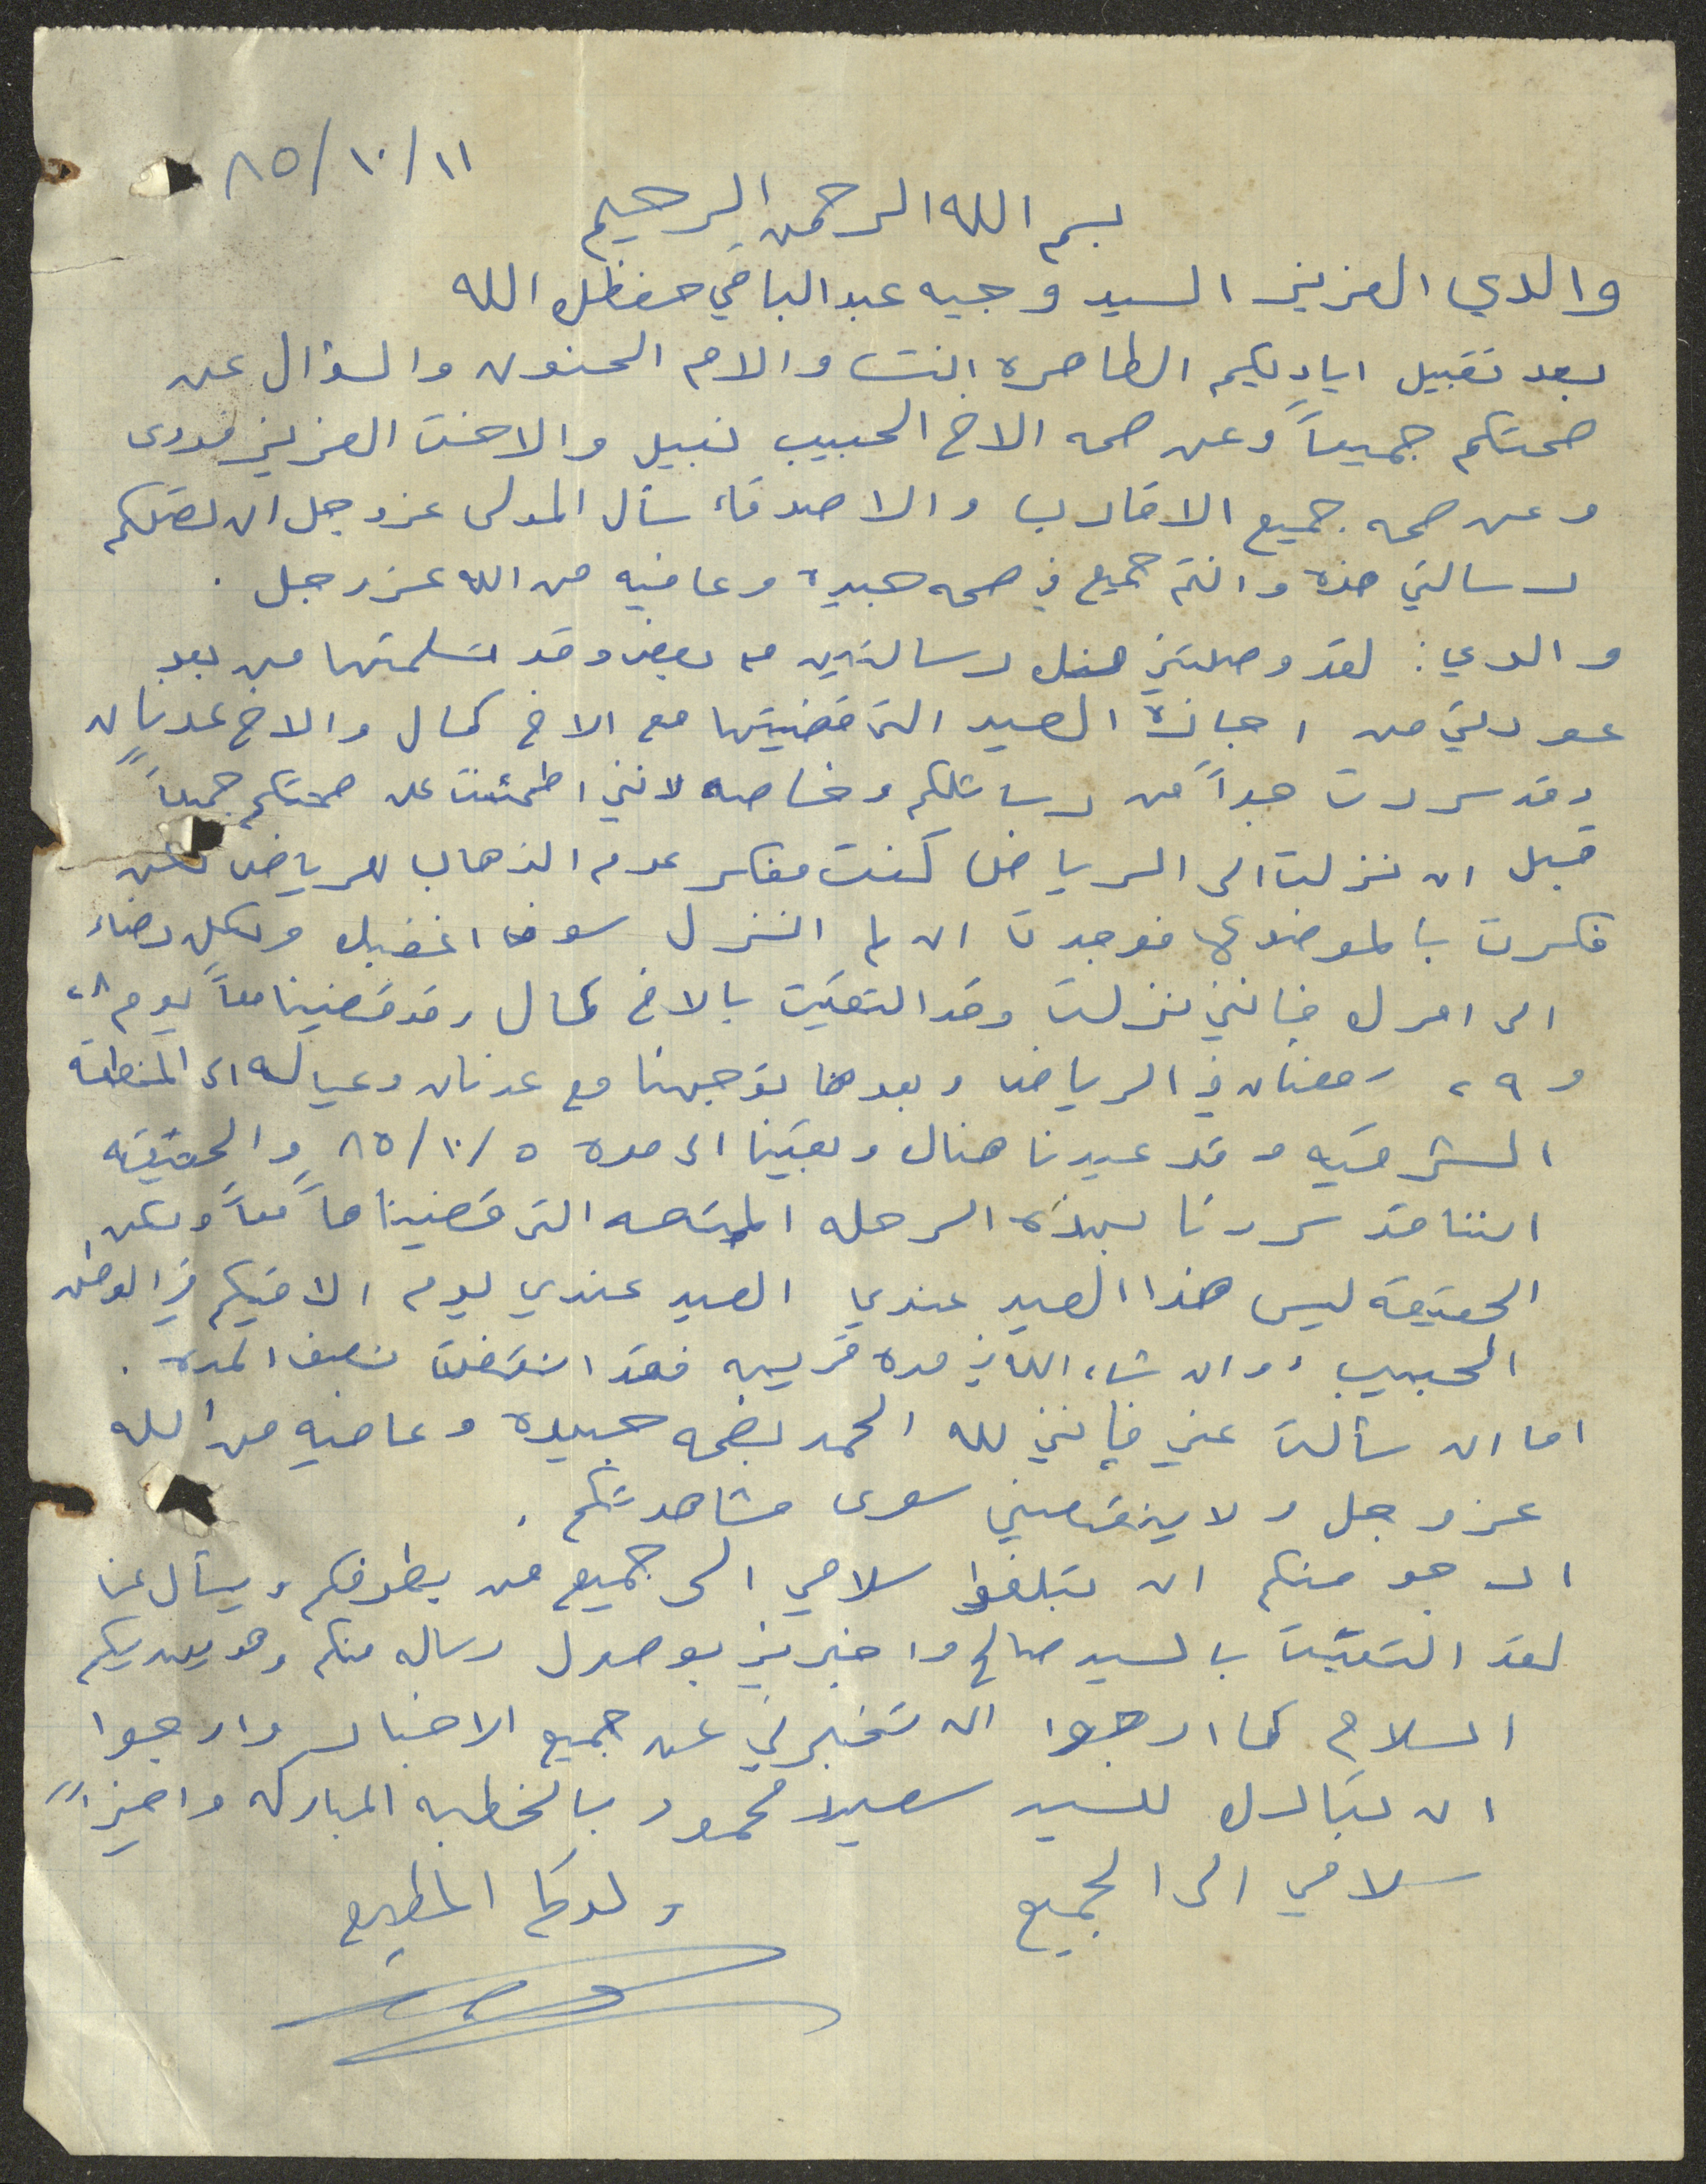 ٨٥/١٠/١١
بسم الله الرحمن الرحيم
والدي العزيز السيد وجيه عبد الباقي حفظك الله
بعد تقبيل اياديكم الطاهره انت والام الحنون والسؤال عن
صحتكم جميعاً وعن صحه الاخ الحبيب نبيل والاخت العزيز فدوى
وعن صحه جميع الاقارب والاصدقاء سأل المولى عزوجل ان تصلكم
رسالتي هذه وانتم جميع في صحه جيده وعافيه من الله عزوجل .
والدي : لقد وصلتني منك رسالتين مع بعض وقد تسلمتها من بعد
عودتي من اجازة العيد التي قضيتها مع الاخ كمال والاخ عدنان
وقد سررت جداً من رسائلكم وخاصه لانني اطمئنت على صحتكم جميعاً
قبل ان نزلت الى الرياض كنت مفكر عدم الذهاب للرياض لكن
فكرت بالموضوع فوجدت ان لم انزل سوف اغضبك ولكل رضاء
الى امرك فإنني نزلت وقد التقيت بالاخ كمال وقد قضينا معاً يوم ٢٨
و ٢٩ رمضان في الرياض وبعدها توجهنا مع عدنان وعياله الى المنطقة
الشرقيه وقد عيدنا هناك وبقينا الى مده ٨٥/١٠/٥ والحقيقه
اننا قد سررنا بهذه الرحله الممتعه التي قضيناها معاً ولكن
الحقيقة ليس هذا العيد عندي العيد عندي يوم الاقيكم في الوطن
الحبيب ، وان شاء الله في مده قريبه فقد انقضت نصف المده .
اما ان سألت عني فإنني لله الحمد بصحه جيده وعافيه من الله
عزوجل ولا ينقصني سوى مشاهدتكم .
ارجو منكم ان تبلغوا سلامي الى جميع من بطرفكم ويسأل عنا
لقد التقيت بالسيد صالح واخبرني بوصول رساله منكم وهو يهديكم
السلام كما ارجوا ان تخبرني عن جميع الاخبار وارجوا
ان تبارك للسيد سعيد محمود بالخطبه المباركه واخيراً
سلامي الى الجميع
ولدكم المطيع